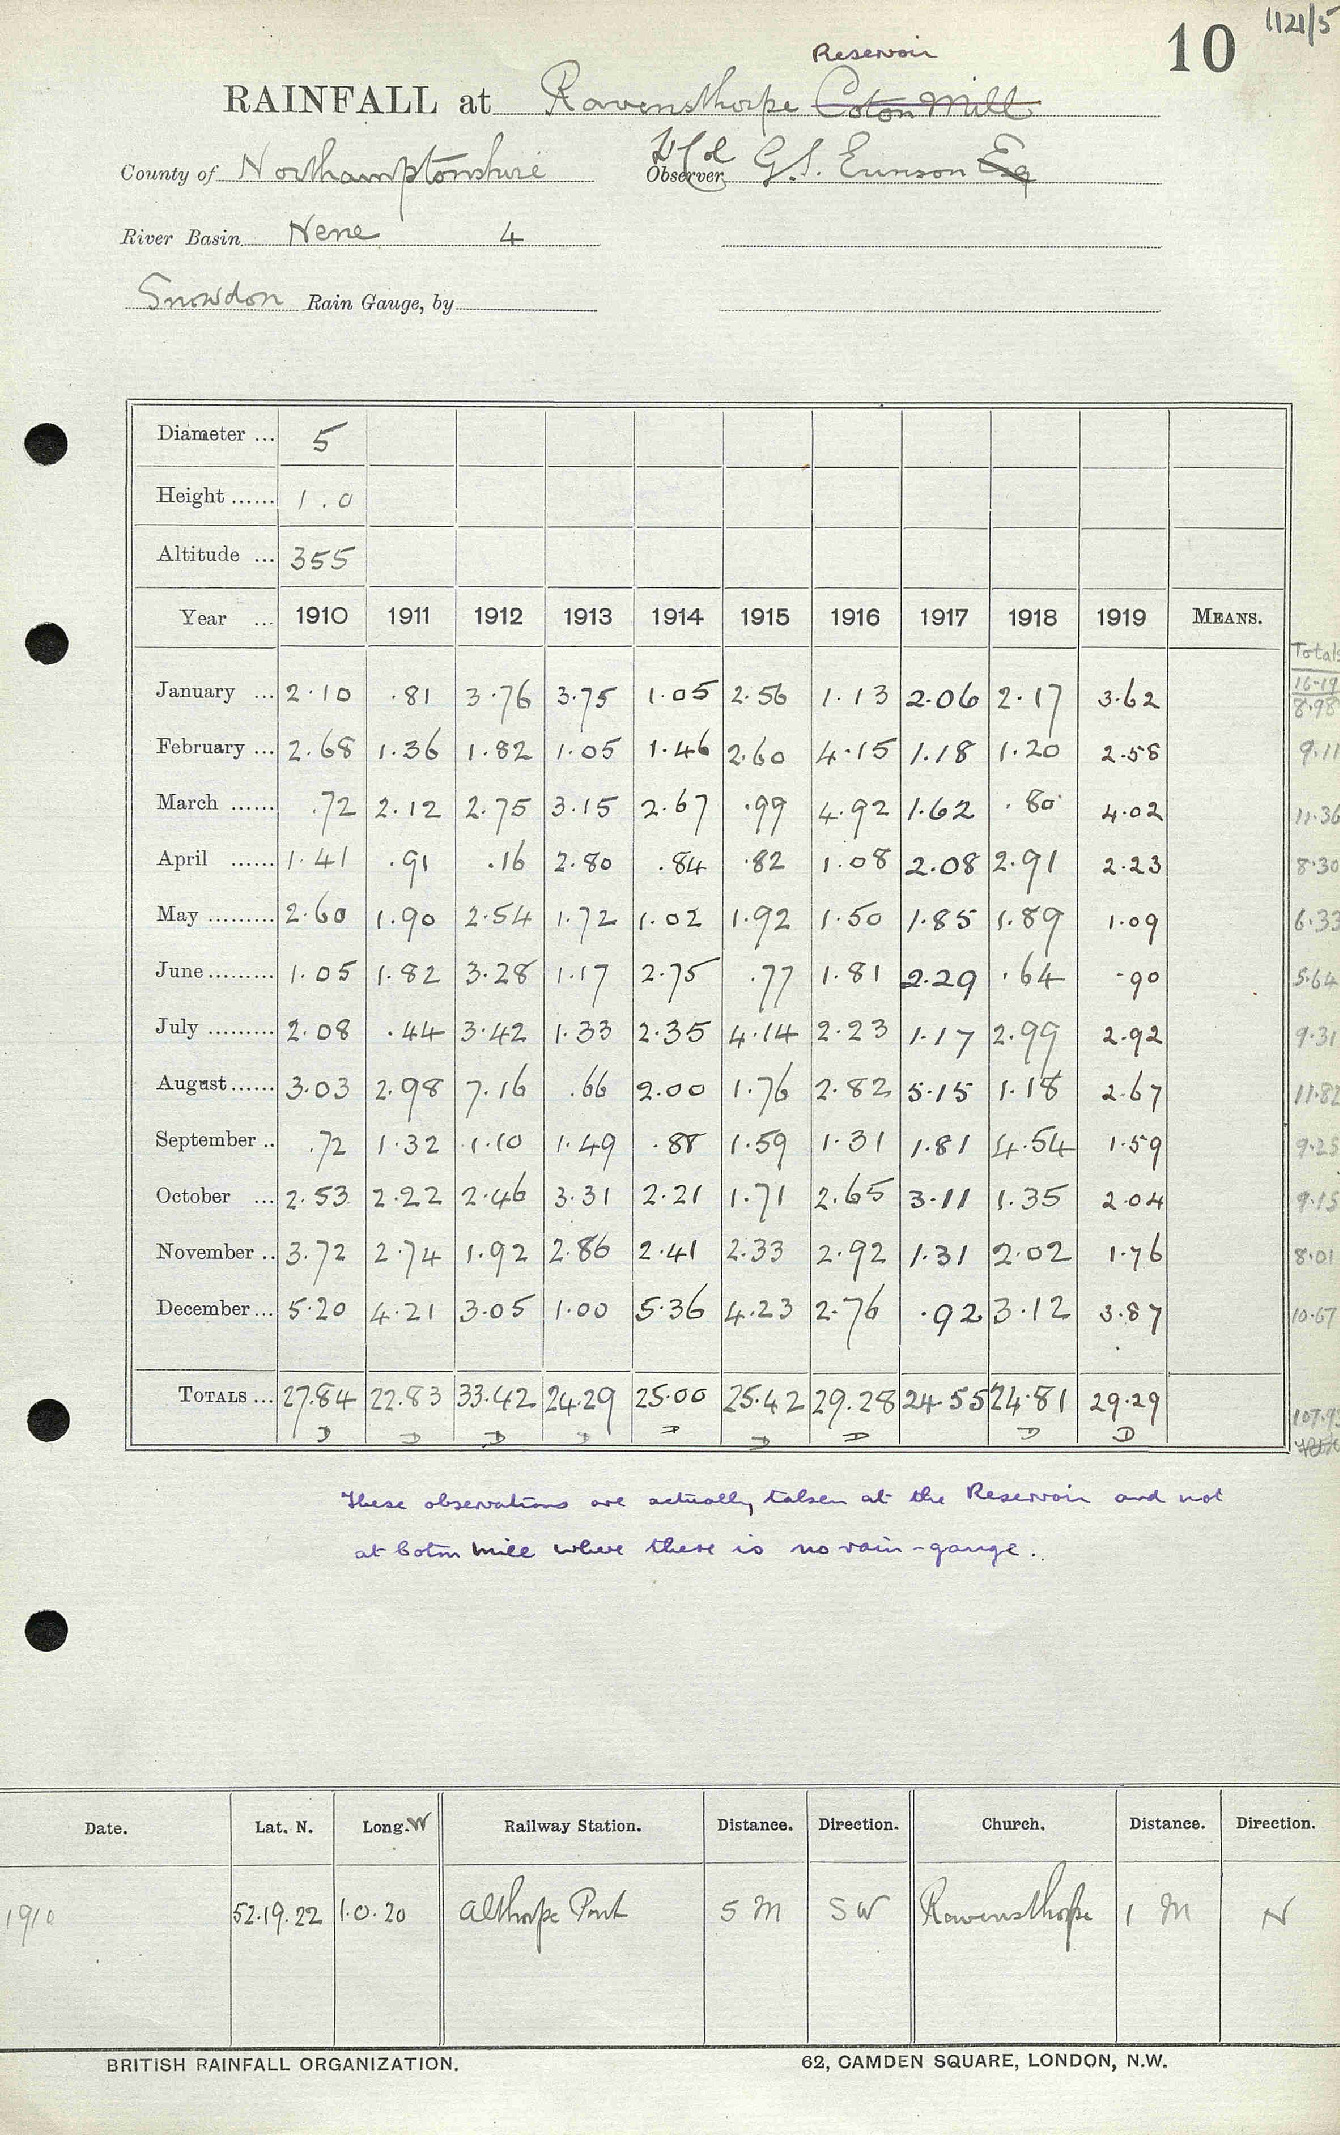 10 1121/5
Reservoir
RAINFALL at Ravensthorpe Coton Mill
County of Northamptonshire Lt Col Observer G.S. Eunson Esq
River Basin Nene 4
Snowdon Rain Gauge, by
Diameter ... 5
Height ...... 1.0
Altitude ... 355
Year ... 1910 1911 1912 1913 1914 1915 1916 1917 1918 1919 MEANS.
Totals
16-19
January ... 2.10 .81 3.76 3.75 1.05 2.56 1.13 2.06 2.17 3.62 8.98
February ... 2.68 1.36 1.82 1.05 1.46 2.60 4.15 1.18 1.20 2.58 9.11
March ...... .72 2.12 2.75 3.15 2.67 .99 4.92 1.62 .80 4.02 11.36
April ...... 1.41 .91 .16 2.80 .84 .82 1.08 2.08 2.91 2.23 8.30
May ......... 2.60 1.90 2.54 1.72 1.02 1.92 1.50 1.85 1.89 1.09 6.33
June ......... 1.05 1.82 3.28 1.17 2.75 .77 1.81 2.29 .64 .90 5.64
July ......... 2.08 .44 3.42 1.33 2.35 4.14 2.23 1.17 2.99 2.92 9.31
August ...... 3.03 2.98 7.16 .66 2.00 1.76 2.82 5.15 1.18 2.67 11.82
September .. .72 1.32 1.10 1.49 .88 1.59 1.31 1.81 4.54 1.59 9.25
October ... 2.53 2.22 2.46 3.31 2.21 1.71 2.65 3.11 1.35 2.04 9.15
November .. 3.72 2.74 1.92 2.86 2.41 2.33 2.92 1.31 2.02 1.76 8.01
December ... 5.20 4.21 3.05 1.00 5.36 4.23 2.76 .92 3.12 3.87 10.67
TOTALS ... 27.84 22.83 33.42 24.29 25.00 25.42 29.28 24.55 24.81 29.29 107.93
D D D D D D D D D
These observations are actually taken at the Reservoir and not
at Coton Mill where there is no rain-gauge.
Date. Lat. N. Long. W Railway Station. Distance. Direction. Church. Distance. Direction.
1910 52.19.22 1.0.20 Althorpe Park 5 M SW Ravensthorpe 1 M N
BRITISH RAINFALL ORGANIZATION. 62, CAMDEN SQUARE, LONDON, N.W.